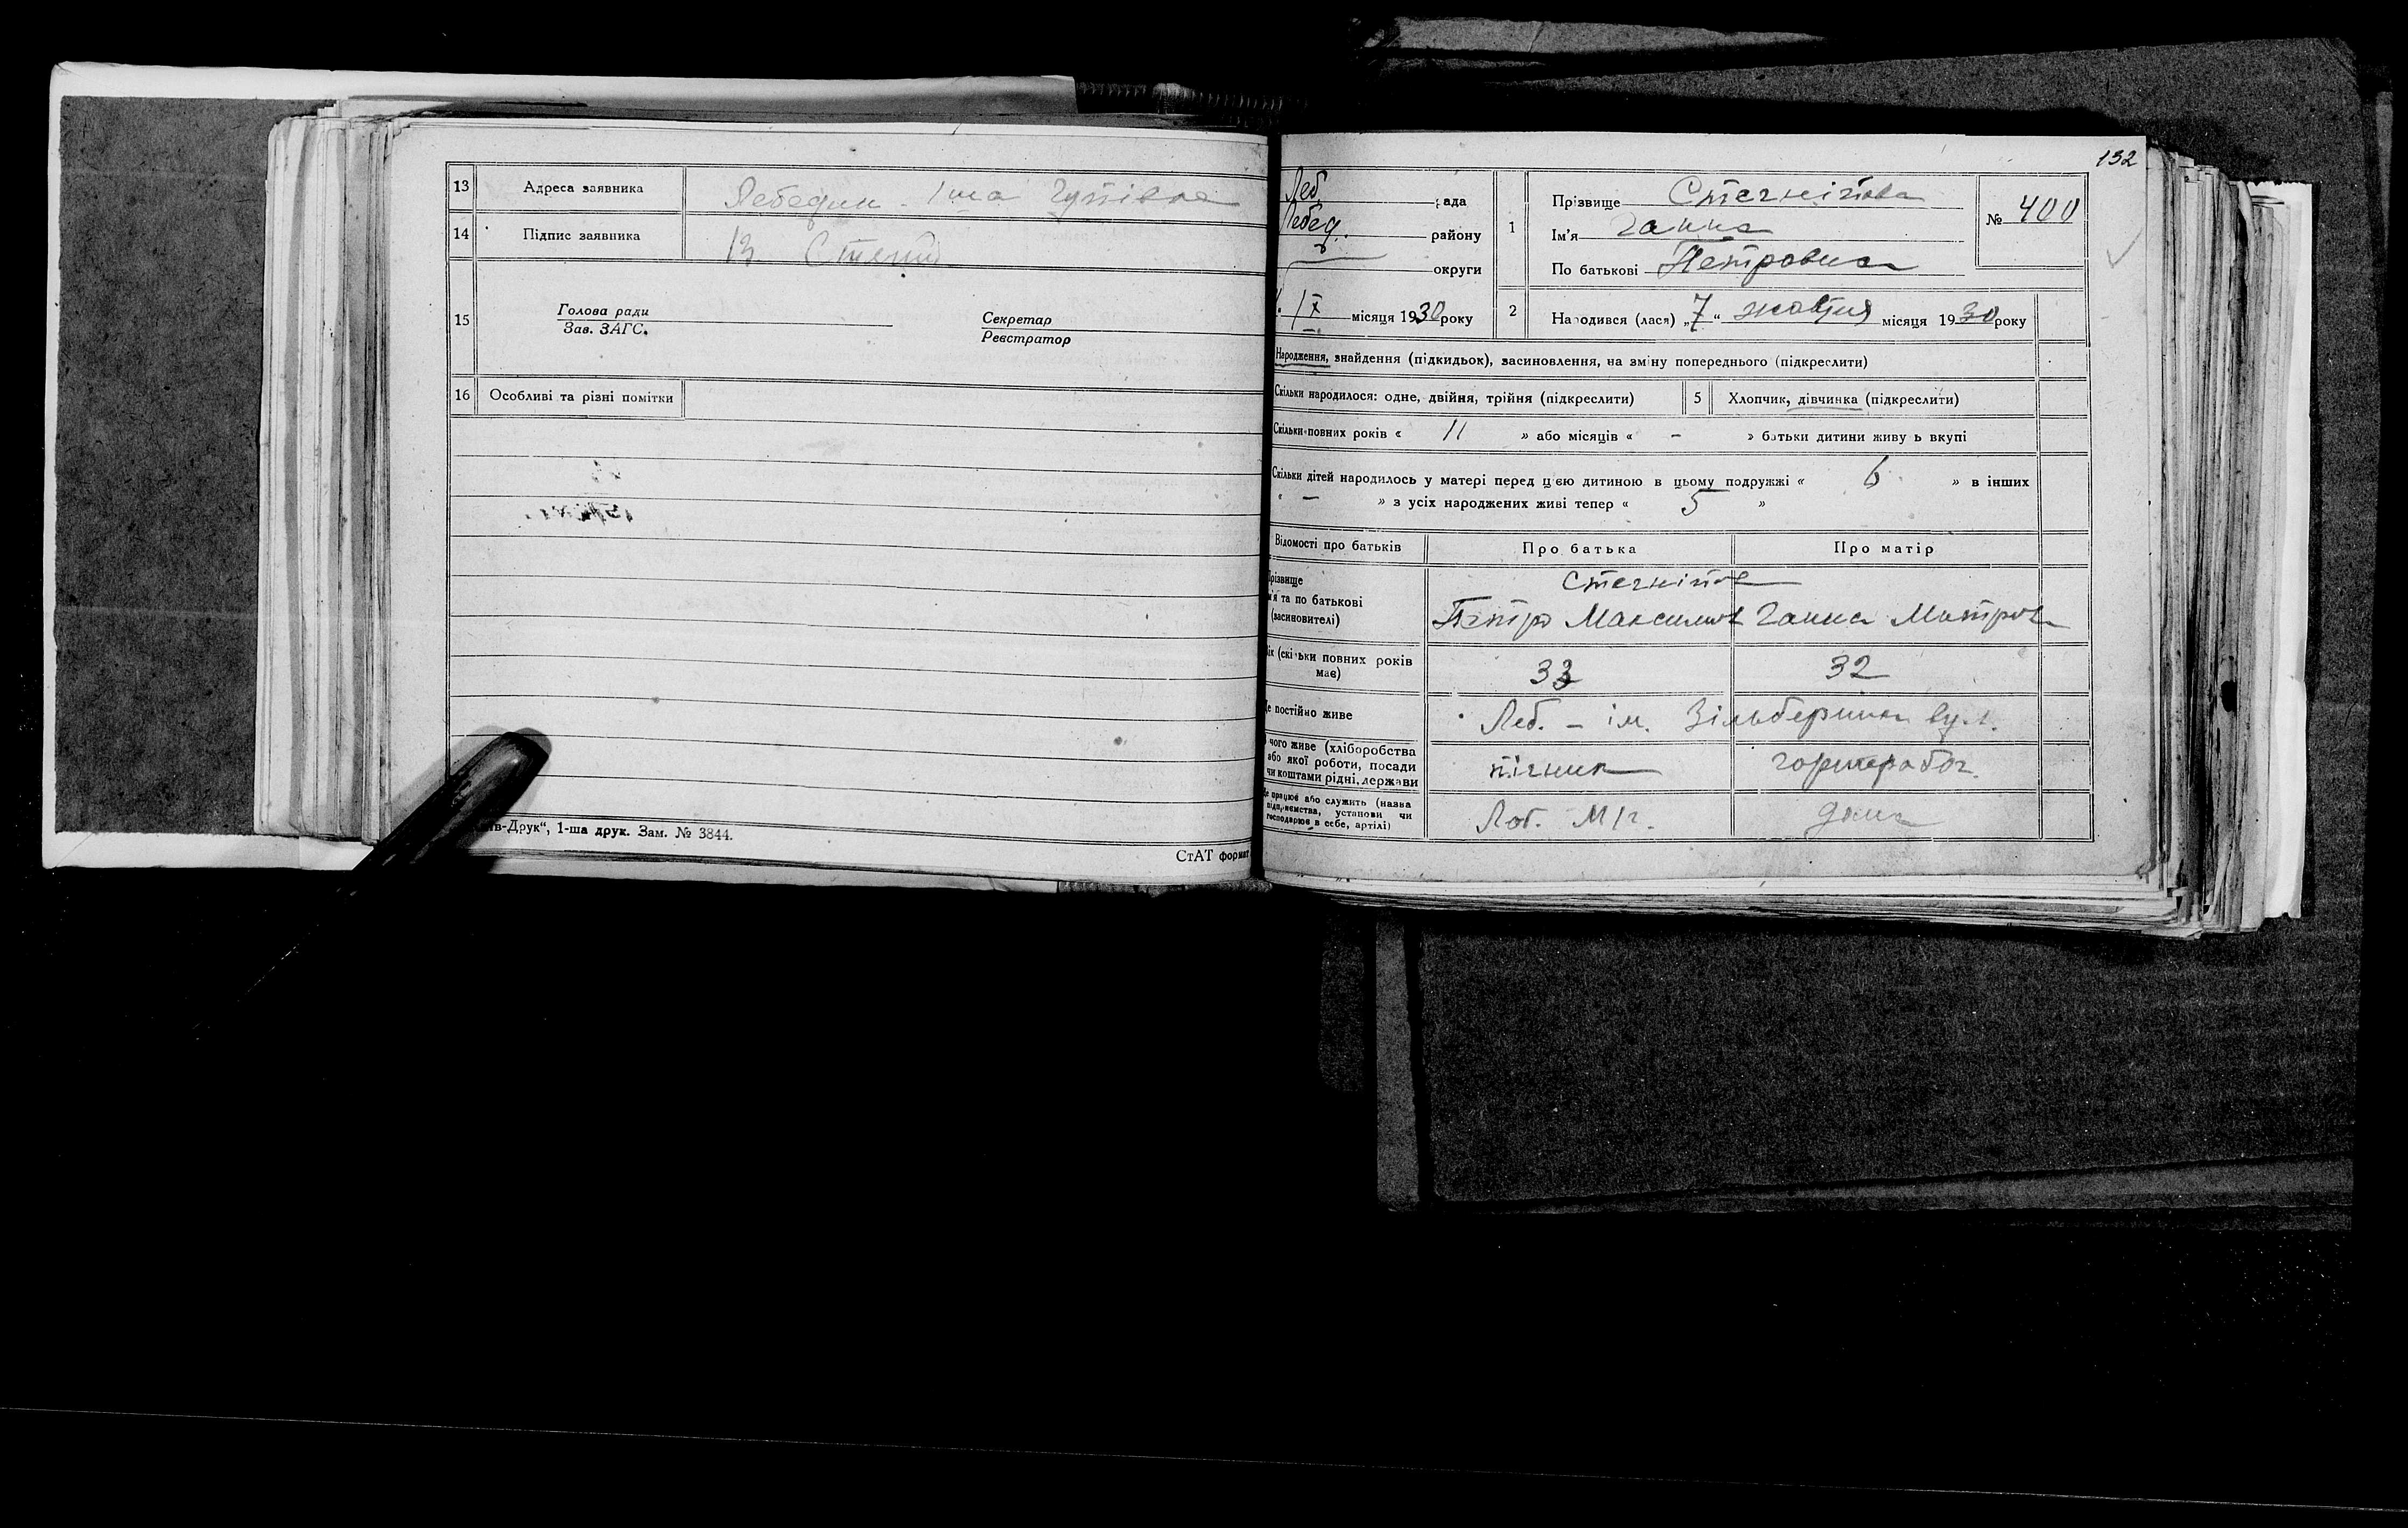 13 Адреса заявника Лебедин
14 Підпис заявника
15 Голова ради
Зав. ЗАГС.
Секретар
Реєстратор
16 Особливі та різні помітки
в-Друк“, 1-ша друк. Зам. № 3844.
СтАТ формат
132
Леб. рада
Лебед. району
округи
IX місяця 1930 року
1 Прізвище
Ім'я Ганна
По батькові Петровна
№ 400
2 Народився (лася) „7“ жовтня місяця 1930 року
Народження, знайдення (підкидьок), засиновлення, на зміну попереднього (підкреслити)
Скільки народилося: одне, двійня, трійня (підкреслити) 5 Хлопчик, дівчинка (підкреслити)
Скільки повних років « 11 » або місяців « - » батьки дитини живу ь вкупі
Скільки дітей народилось у матері перед цією дитиною в цьому подружжі « 6 » в інших
« — » з усіх народжених живі тепер « 5 »
Відомості про батьків Про батька Про матір
різвище
м'я та по батькові
(засиновителі)
Петро Максимов Ганна Митров
ік (скільки повних років
має)
33 32
е постійно живе Леб. – ім. вул.
чого живе (хліборобства
або якої роботи, посади
чи коштами рідні, держави
пічник
е працює або служить (назва
підприємства, установи чи
господарює в себе, артілі)
дома